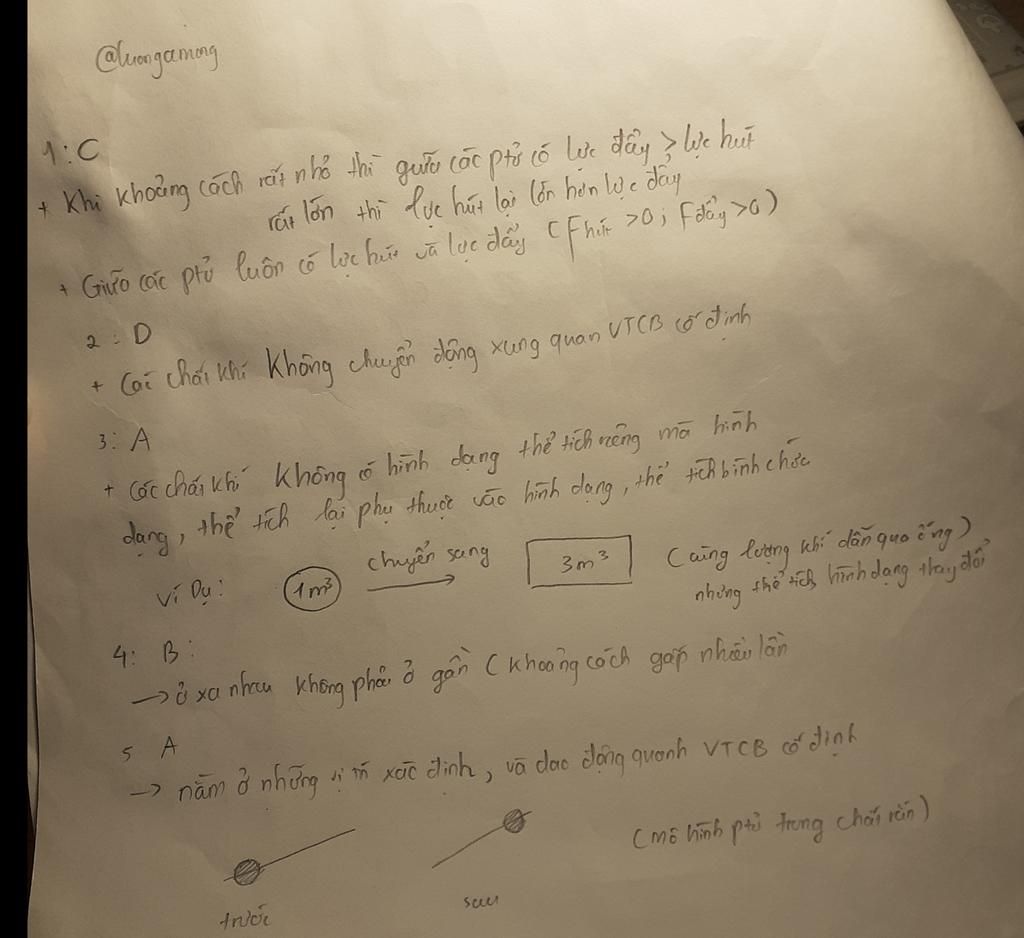 @luongaming
1: C
+ Khi khoảng cách rất nhỏ thì giữa các ptử có lực đẩy > lực hút
rất lớn thì lực hút lại lớn hơn lực đẩy
+ Giữa các ptử luôn có lực hút và lực đẩy (Fhút >0; Fđẩy >0)
2: D
+ Các chất khí không chuyển động xung quan VTCB cố định
3: A
+ các chất khí không có hình dạng thể tích riêng mà hình
dạng, thể tích lại phụ thuộc vào hình dạng, thể tích bình chứa
Ví Dụ: 1m³ chuyển sang 3m³ (cùng lượng khí dẫn qua ống)
nhưng thể tích, hình dạng thay đổi
4: B:
→ ở xa nhau không phải ở gần (khoảng cách gấp nhiều lần
5 A
→ nằm ở những vị trí xác định, và dao động quanh VTCB cố định
(mô hình ptử trong chất rắn)
trước sau